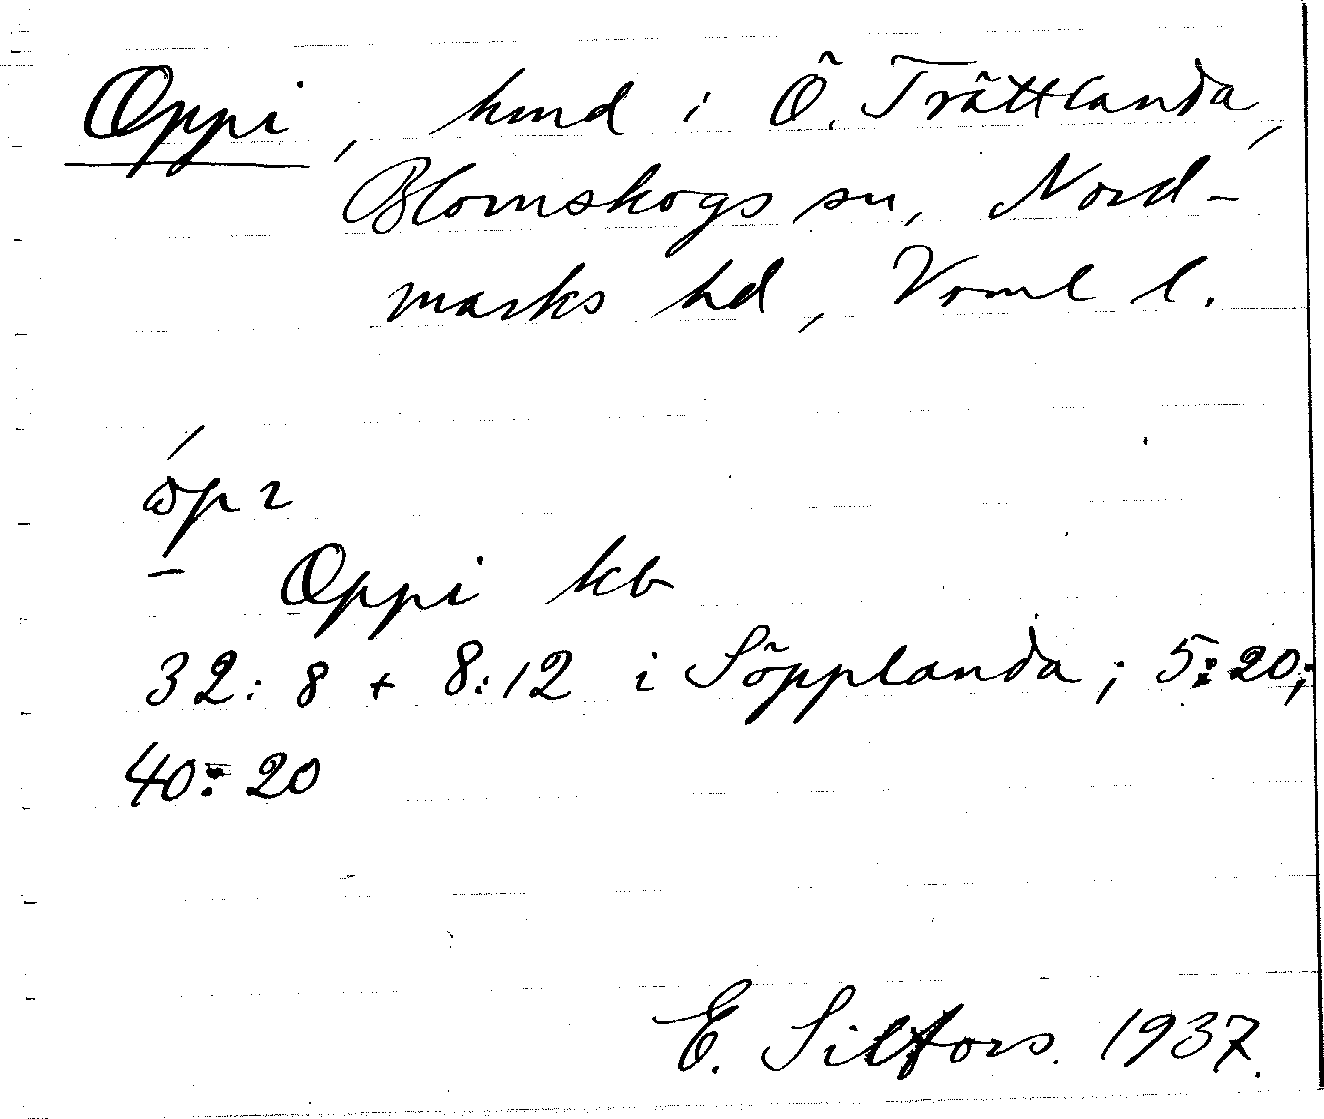 Oppi, hmd i Ö. Trättlanda,
Blomskogs sn, Nord-
marks hd, Vrml l.
Oppi kb
32: 8 + 8:12 i Söpplanda; 5:20;
40:20
E. Silfors. 1937.